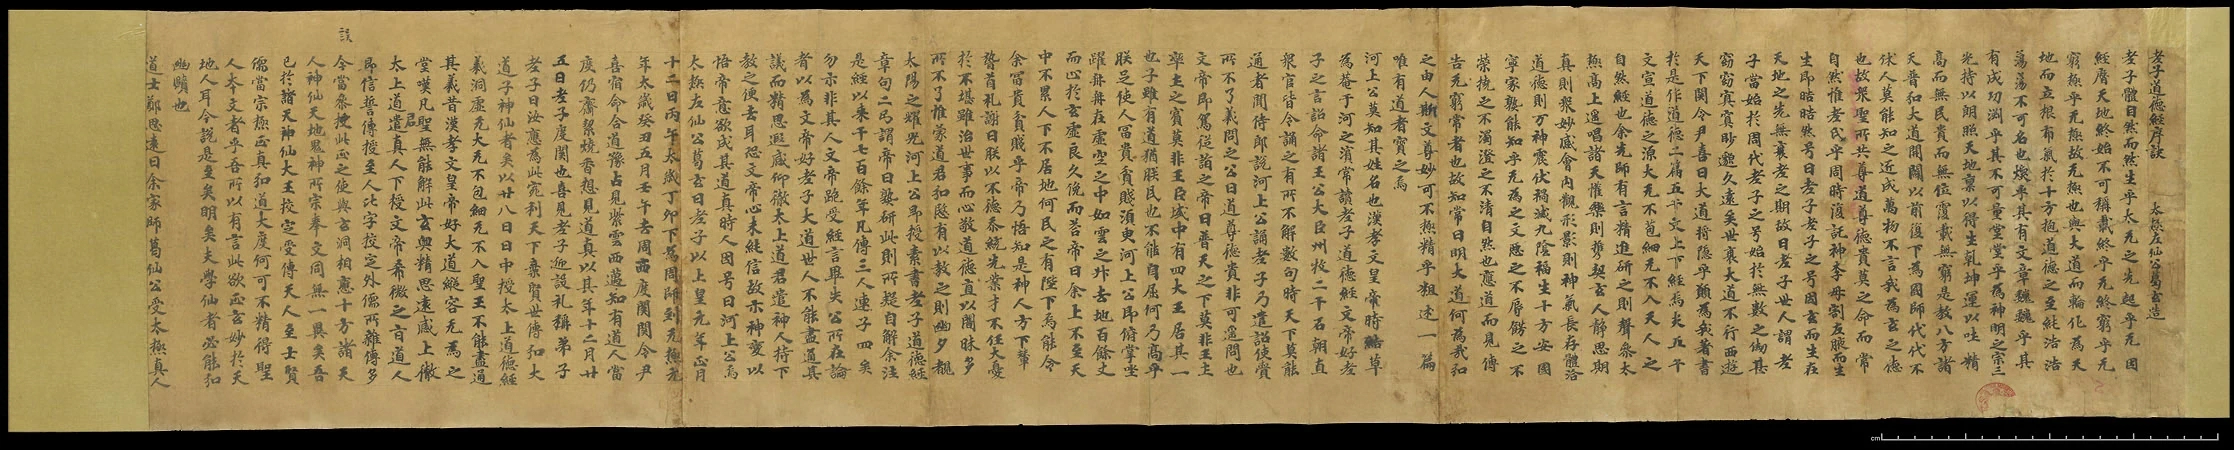 老子道德經序訣　太極左仙公葛玄造
老子體自然而然生乎太无之先起乎无因
經歷天地終始不可稱載終乎无終窮乎无
窮極乎无極故无極也與大道而輪化為天
地而立根布氣於十方抱道德之至純浩浩
蕩蕩不可名也煥乎其有文章巍巍乎其
有成功淵乎其不可量堂堂乎為神明之宗三
光持以朗照天地稟以得生乾坤運以吐精
高而無民貴而無位覆載無窮是教八方諸
天普弘大道開闢以前復下為國師代代不
休人莫能知之近成萬物不言我為玄之德
也故衆聖所共尊道尊德貴莫之命而常
自然惟老氏乎周時復託神李母割左腋而生
生即皓皓然号曰老子老子之号因玄而生在
天地之先無衰老之期故曰老子世人謂老
子當始於周代老子之号始於無數之劫其
窈窈冥冥眇邈久遠矣世衰大道不行西遊
天下關令尹喜曰大道將隱乎願為我著書
於是作道德二篇五千文上下經焉夫五千
文宣道德之源大无不苞細无不入天人之
自然經也余先師有言精進研之則聲參太
極高上遥唱諸天懽樂則攜契玄人静思期
真則衆妙感會内觀形影則神氣長存體洽
道德則万神震伏禍滅九陰福生十方安國
寧家孰能知乎无為之文恧之不辱飾之不
榮撓之不濁澄之不清自然也應道而見傳
告无窮常者也故知常曰明大道何為哉弘
之由人斯文尊妙可不極精乎粗述一篇
唯有道者寶之焉
河上公莫知其姓名也漢孝文皇帝時結草
為菴于河之濱常讀老子道德經文帝好老
子之言詔命諸王公大臣州牧二千石朝直
衆官皆令誦之有所不解數句時天下莫能
通者聞侍郎說河上公誦老子乃遣詔使賫
所不了義問之公曰道尊德貴非可遥問也
文帝即駕從詣之帝曰普天之下莫非王土
率土之賓莫非王臣域中有四大王居其一
也子雖有道猶朕民也不能自屈何乃高乎
朕足使人富貴貧賤須臾河上公即俯掌坐
躍冉冉在虛空之中如雲之升去地百餘丈
而心於玄虛良久俛而荅帝曰余上不至天
中不累人下不居地何民之有陛下焉能令
余富貴貧賤乎帝乃悟知是神人方下輦
稽首礼謝曰朕以不德忝統先業才不任大憂
於不堪雖治世事而心敬道德直以闇昧多
所不了惟蒙道君弘愍有以教之則幽夕覩
太陽之耀光河上公即授素書老子道德經
章句二弓謂帝曰熟研此則所疑自解余注
是經以來千七百餘年凡傳三人連子四矣
勿示非其人文帝跪受經言畢失公所在論
者以為文帝好老子大道世人不能盡通其
議而精思遐感仰徹太上道君遣神人特下
教之便去耳恐文帝心未純信故示神變以
悟帝意欲成其道真時人因号曰河上公焉
太極左仙公葛玄曰老子以上皇元年正月
十二日丙午太歲丁卯下為周師到无極元
年太歲癸丑五月壬午去周西度關關令尹
喜宿命合道豫占見紫雲西邁知有道人當
度仍齋絜燒香想見道真以其年十二月廿
五日老子度關也喜見老子迎設礼稱弟子
老子曰汝應為此宛利天下棄賢世傳弘大
道子神仙者矣以廿八日日中授太上道德經
義洞虛无大无不包細无不入聖王不能盡通
其義昔漢孝文皇帝好大道縱容无為之
堂嘆凡聖無能解此玄奧精思遠感上徹
太上道君遣真人下授文帝希微之旨道人
即信誓傳授至人比字挍定外儒所雜傳多
誤今當參挍此正之使與玄洞相應十方諸天
人神仙天地鬼神所宗奉文同無一異矣吾
已於諸天神仙大王挍定受傳天人至士賢
儒當宗極正真弘道大度何可不精得聖
人本文者乎吾所以有言此欲正玄妙於天
地人耳今說是至矣明矣夫學仙者必能弘
幽賾也
道士鄭思遠曰余家師葛仙公受太極真人